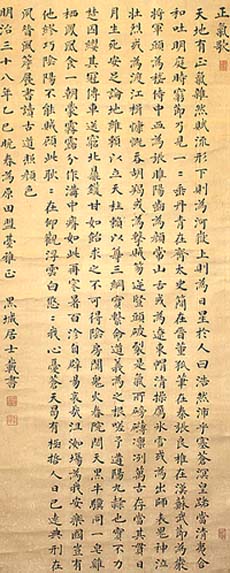 正氣歌
天地有正氣雜然賦流形下則為河嶽上則為日星於人曰浩然沛乎塞蒼冥皇路當清夷含
和吐明庭時窮節乃見一〻垂丹青在齊太史簡在晉董狐筆在秦張良椎在漢蘇武節為嚴
將軍頭為嵇侍中血為張睢陽齒為顏常山舌或為遼東帽清操厲冰雪或為出師表鬼神泣
壯烈或為渡江楫慷慨吞胡羯或為擊賊笏逆豎頭破裂是氣所磅礴凜冽萬古存當其貫日
月生死安足論地維賴以立天柱賴以尊三綱實繫命道義為之根嗟予遘陽九隸也實不力
楚囚纓其冠傳車送窮北鼎鑊甘如飴求之不可得陰房闃鬼火春院閟天黑牛驥同一皂雞
棲鳳凰食一朝蒙霧露分作溝中瘠如此再寒暑百沴自辟易哀哉沮洳場為我安樂國豈有
他繆巧陰陽不能賊顧此耿〻在仰視浮雲白悠〻我心憂蒼天曷有極哲人日已遠典刑在
夙昔風簷展書讀古道照顏色
明治三十八年乙巳晚春為原田盟臺雅正 黑城居士戴書